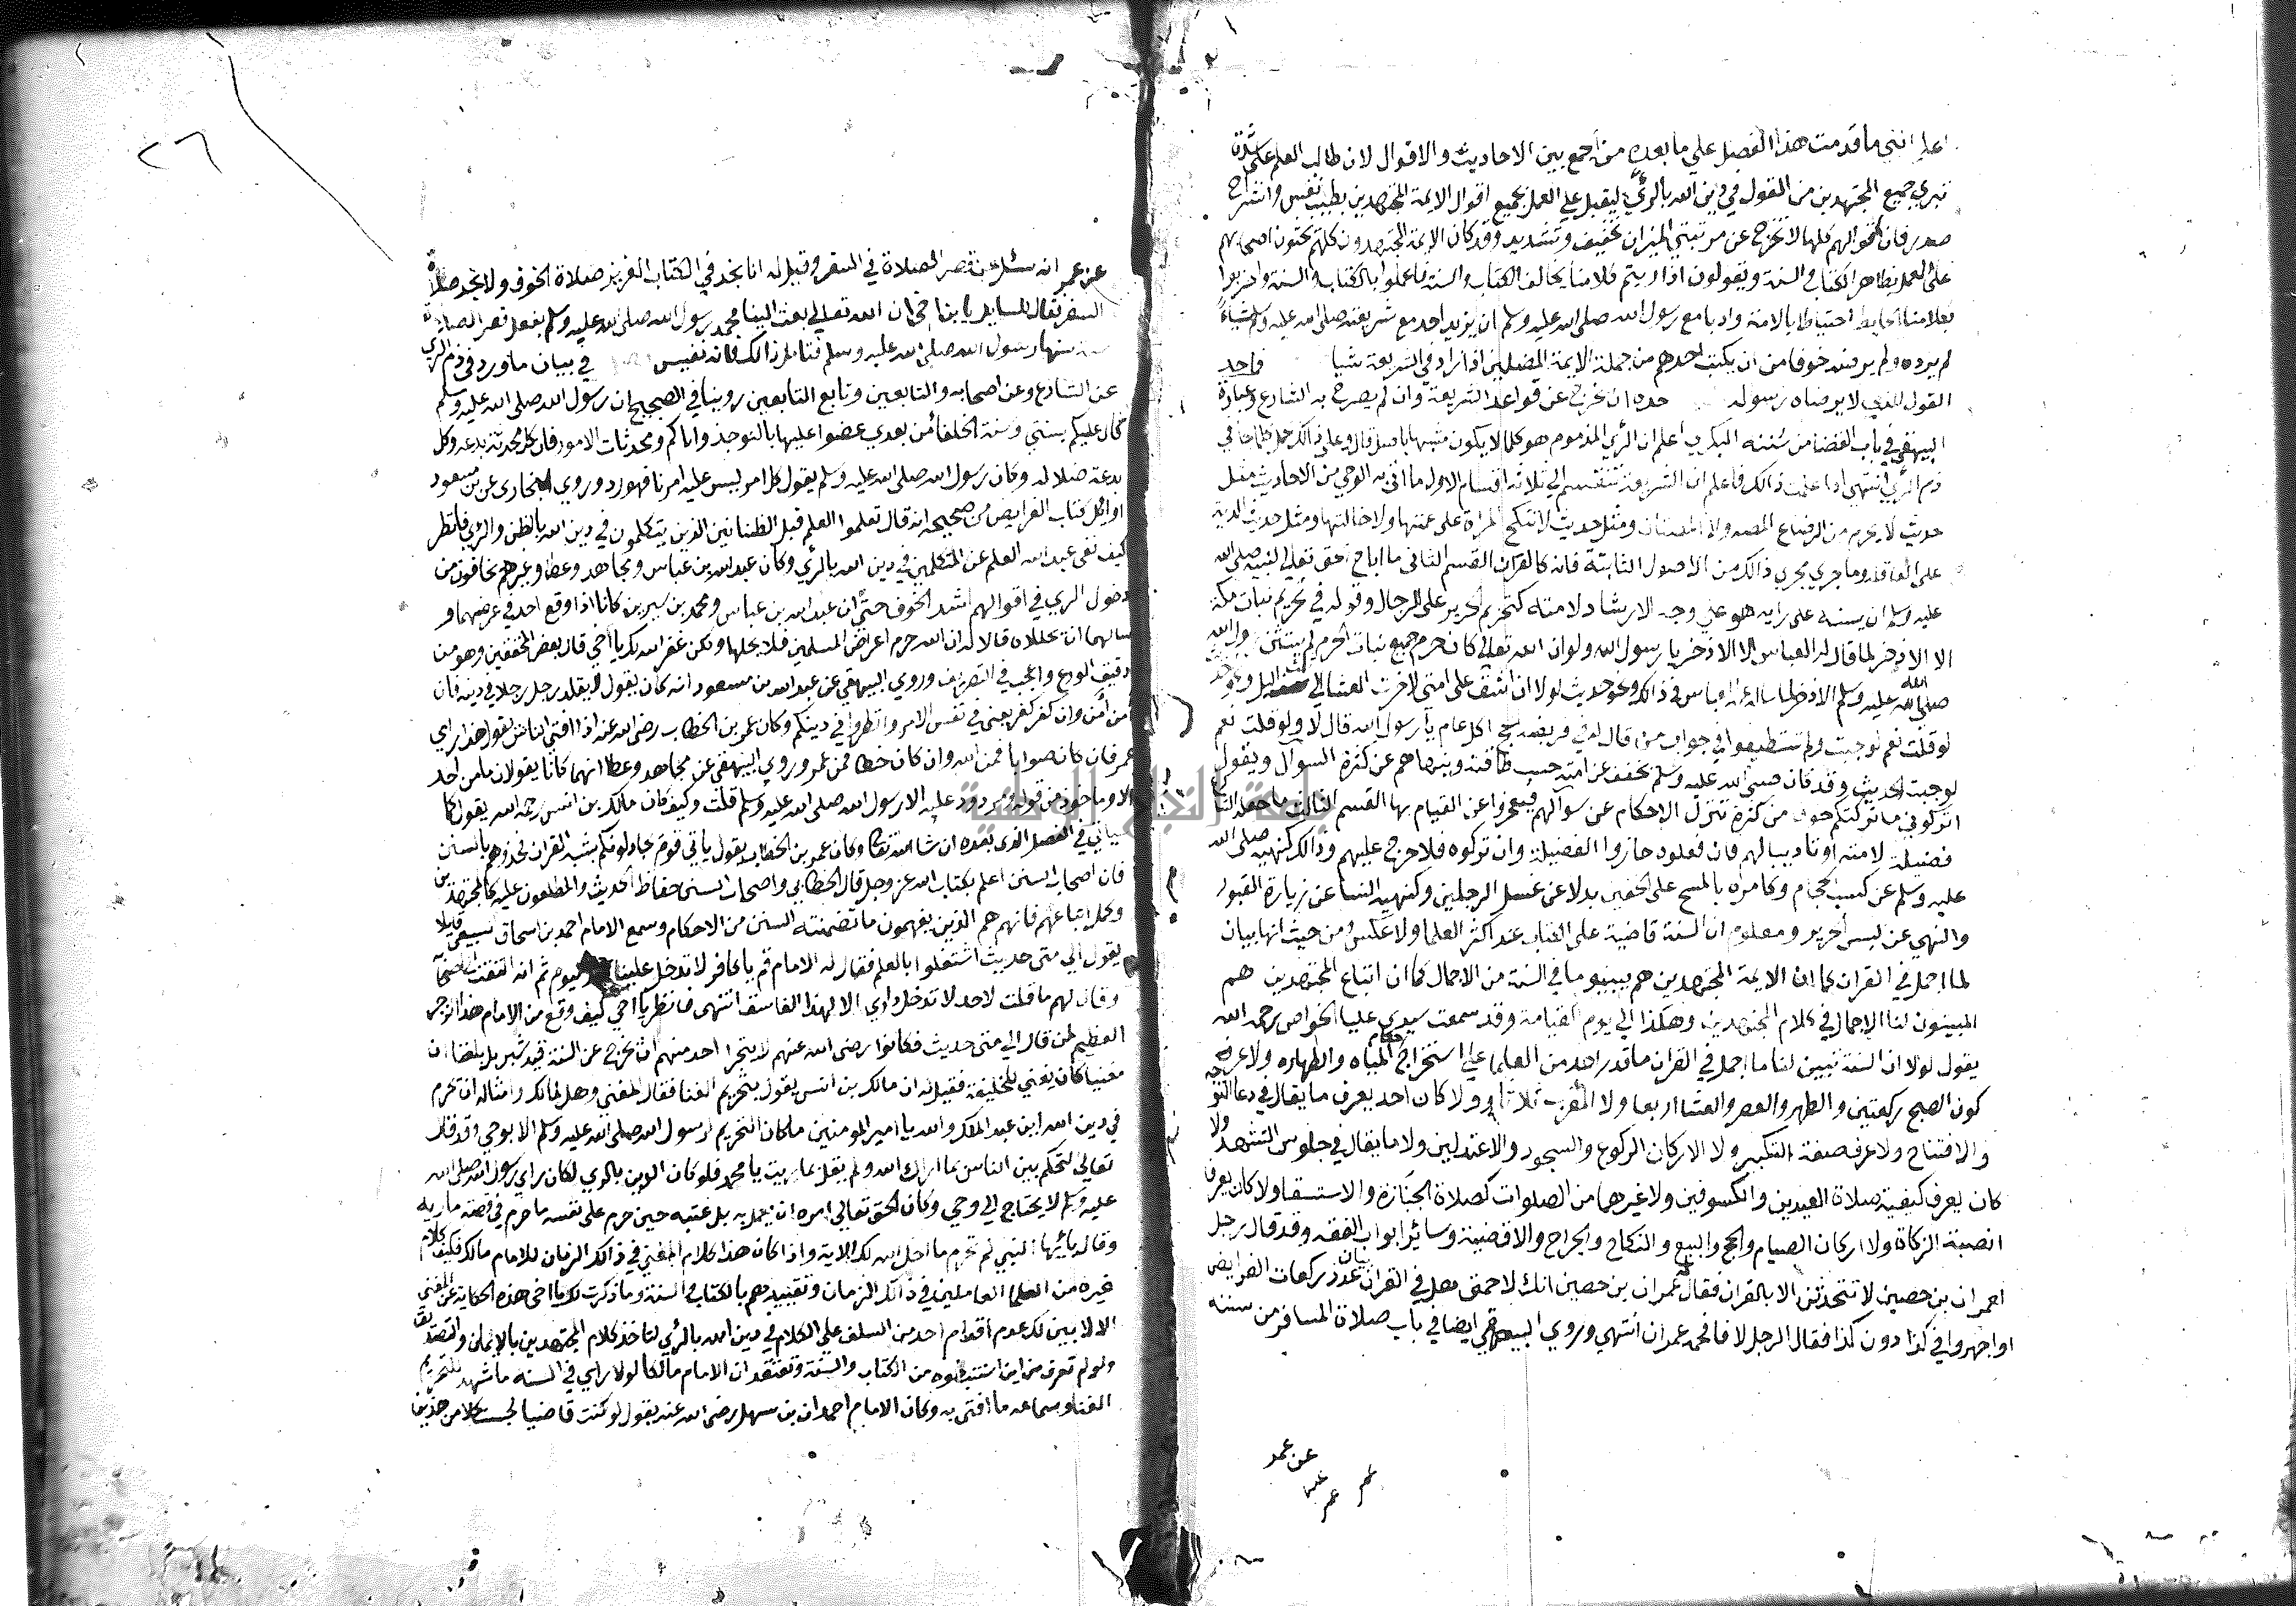 اعلم انني ما قدمت هذا الفصل علي ما بعده من الجمع بين الاحاديث والاقوال لان طالب العلم
تبري جميع المجتهدين من القول في دين الله بالرئي ليقبل علي العمل بجميع اقوال الايمة المجتهدين بطيب نفس وانشراح
صدر فان اقوالهم كلها لا تخرج عن مرتبتي الميزان تخفيف وتشديد وقد كان الايمة المجتهدون كلهم يحثون اصحابهم
علي العمل بظاهر الكتاب والسنة ويقولون اذا ريتم كلامنا يخالف الكتاب والسنة فاعملوا بالكتاب والسنة واضربوا
بكلامنا الحايط احتياطا بالامة وادبا مع رسول الله صلى الله عليه وسلم ان يزيد احد مع شريعته صلى الله عليه وسلم شياء
لم يرده ولم يرضه خوفا من ان يكتب احدهم من جملة الايمة المضلين اذا زاد في الشريعة شيا
القول الذي لا يرضاه رسوله حده ان يخرج عن قواعد الشريعة وان لم يصرح به الشارع وعبارة
البيهقي في باب القضا من سننه الكبري اعلم ان الرئي المذموم هو كلما لا يكون مشبها باصل قال وعلي ذالك يحمل كلما جا في
ذم الرئي انتهي اذا علمت ذالك فاعلم ان الشريعة تنقسم الي ثلاثة اقسام الاول ما اتى به الوحي من الاحاديث مثل
حديث لا يحرم من الرضاع المصه ولا المصتان ومثل حديث لا تنكح المراة على عمتها ولا خالتها ومثل حديث الدية
على العاقلة وما جري مجري ذالك من الاصول الثابتة فانه كالقران القسم الثاني ما اباح الحق تعالي لنبيه صلى الله
عليه وسلم ان يسنه على رايه هو علي وجه الارشاد لامته كتحريم الحرير على الرجال وقوله في تحريم نبات مكة
الا الاذخر لما قال له العباس الا الاذخر يا رسول الله ولولا ان الله تعالي كان حرم جميع نبات الحرم لم يستثن رسول الله
صلى الله عليه وسلم الاذخر لما ساله العباس في ذالك ونحو حديث لولا ان اشق على امتي لاخرت العشا الي ثلث الليل ونحو حديث
لو قلت نعم لوجبت ولم تستطيعوا في جواب من قال له في فريضة الحج اكل عام يا رسول الله قال لا ولو قلت نعم
لوجبت الحديث وقد كان صلى الله عليه وسلم يخفف عن امته حسب طاقته وينهاهم عن كثرة السوال ويقول
اتركوني ما تركتكم خوفا من كثرة تنزل الاحكام عن سوالهم فيعجزوا عن القيام بها القسم الثالث ما جعله الشارع
فضيلة لامته او تاديبا لهم فان فعلوه حازوا الفضيلة وان تركوه فلا حرج عليهم وذالك كنهيه صلى الله
عليه وسلم عن كسب الحجام وكامره بالمسح على الخفين بدلا عن غسل الرجلين وكنهيه النسا عن زيارة القبور
والنهي عن لبس الحرير ومعلوم ان السنة قاضية على الكتاب عند اكثر العلما ولا عكس ومن حيث انها بيان
لما اجمل في القران كما ان الايمة المجتهدين هم يبينو ما في السنة من الاجمال كما ان اتباع المجتهدين هم
المبينون لنا الاجمال في كلام المجتهدين وهكذا الي يوم القيامة وقد سمعت سيدي عليا الخواص رحمه الله
يقول لولا ان السنة تبين لنا ما اجمل في القران ما قدر احد من العلما علي استخراج احكام المياه والطهاره ولا عرف
كون الصبح ركعتين والظهر والعصر والعشا اربعا ولا المغرب ثلاثا ولا كان احد يعرف ما يقال في دعا التوجه
والافتتاح ولا عرف صفة التكبير ولا الاركان الركوع والسجود والاعتدلين ولا ما يقال في جلوس التشهد ولا
كان يعرف كيفية صلاة العيدين والكسوفين ولا غيرهما من الصلوات كصلاة الجنازة والاستسقا ولا كان يعرف
انصبة الزكاة ولا اركان الصيام والحج والبيع والنكاح والجراح والاقضية وسائر ابواب الفقه وقد قال رجل
لعمران بن حصين لا تتحدثن الا بالقران فقال عمران بن حصين انك لاحمق هل في القران بيان عدد ركعات الفرايض
او اجهروا في كذا دون كذا فقال الرجل لا فافحمه عمران انتهي وروي البيهقي ايضا في باب صلاة المسافر من سننه
عن عمر
عن
عمر
عمر
٢٦
عن عمر انه سئل عن قصر الصلاة في السفر وقيل له انا نجد في الكتاب العزيز صلاة الخوف ولا نجد صلاة
السفر فقال للسايل يا بن اخي ان الله تعالي بعث الينا محمد رسول الله صلى الله عليه وسلم نفعل قصر الصلاة
سنها رسول الله صلى الله عليه وسلم فتامل ذالك فانه نفيس في بيان ما ورد في ذم الري
عن الشارع وعن اصحابه والتابعين وتابع التابعين روينا في الصحيح ان رسول الله صلى الله عليه وسلم
قال عليكم بسنتي وسنة الخلفا من بعدي عضوا عليها بالنوجذ واياكم ومحدثات الامور فان كل محدثة بدعه وكل
بدعة ضلاله وكان رسول الله صلى الله عليه وسلم يقول كل امر ليس عليه امرنا فهو رد وروي البخاري عن بن مسعود
اوائل كتاب الفرايض من صحيحه انه قال تعلموا العلم قبل الظنانين الذين يتكلمون في دين الله بالظن والري فانظر
كيف نفى عبد الله العلم عن المتكلمين في دين الله بالرئي وكان عبد الله بن عباس ومجاهد وعطا وغيرهم يخافون من
دخول الري في اقوالهم اشد الخوف حتي ان عبد الله بن عباس ومحمد بن سيرين كانا اذا وقع احد في عرضهما و
سالهما ان يحللاه قالا له ان الله حرم اعراض المسلمين فلا يحلها ولكن غفر الله لك يا اخي قال بعض المحققين وهو من
دقيق الورع واعجب في التصريف وروي البيهقي عن عبد الله بن مسعود انه كان يقول لا يقلد رجل رجلا في دينه فان
امن امن وان كفر كفر يعني في نفس الامر وانظروا في دينكم وكان عمر بن الخطاب رضى الله عنه اذا افتى الناس يقول هذا راي
عمر فان كان صوابا فمن الله وان كان خطا فمن عمر وروي البيهقي عن مجاهد وعطا انهما كانا يقولان ما من احد
الا وماخوذ من قوله ومردود عليه الا رسول الله صلى الله عليه وسلم قلت وكيف كان مالك بن انس رحمه الله يقول كما
سياتي في الفصل الذي بعده ان شا الله تعالى وكان عمر بن الخطاب يقول ياتي قوم يجادلونكم بشبه القران فخذوهم بالسنن
فان اصحاب السنن اعلم بكتاب الله عز وجل قال الخطابي واصحاب السنن حفاظ الحديث والمطلعون عليه كالمجتهدين
وكمل اتباعهم فانهم هم الذين يفهمون ما تضمنته السنن من الاحكام وسمع الامام احمد بن اسحاق السبيعي قايلا
يقول الي متى حديث اشتغلوا بالعلم فقال له الامام قم يا كافر لا تدخل علينا اليوم ثم انه التفت
وقال لهم ما قلت لاحد لا تدخل داري الا لهذا الفاسق انتهى فانظر يا اخي كيف وقع من الامام هذا الزجر
العظيم لمن قال الي متى حديث فكانوا رضى الله عنهم لا يتجرا احد منهم ان يخرج عن السنة قيد شبر بل بلغنا ان
مغنيا كان يغني للخليفة فقيل له ان مالك بن انس يقول بتحريم الغنا فقال المغني وهل لمالك وامثاله ان تحرم
في دين الله ابن عبد الملك والله يا امير المومنين ما كان التحريم لرسول الله صلى الله عليه وسلم الا بوحي وقد قال
تعالى لتحكم بين الناس بما اراك الله ولم يقل بما ريت يا محمد فلو كان الدين بالري لكان راي رسول الله صلى الله
عليه وسلم لا يحتاج الي وحي وكان الحق تعالي امره ان يعمل به بل عتبه حين حرم على نفسه ما حرم في قصة ماريه
وقال يا ئيها النبي لم تحرم ما احل الله لك الاية واذا كان هذا كلام المغني في ذالك الزمان للامام مالك فكيف كلام
غيره من العلما العاملين في ذالك الزمان وتقييدهم بالكتاب والسنة وما ذكرت لك يا اخي هذه الحكاية عن المغني
الا لابين لك عدم اقدام احد من السلف علي الكلام في دين الله بالرئي لتاخذ كلام المجتهدين بالايمان والتصديق
ولو لم تعرف من اين استنبطوه من الكتاب والسنة وتعتقد ان الامام مالكا لولا راي في السنه ما شهد للتحريم
الغنا وسماعه ما افتى به وكان الامام احمد ان بن سهل رضى الله عنه يقول لو كنت قاضيا لحبست كلا من هذين